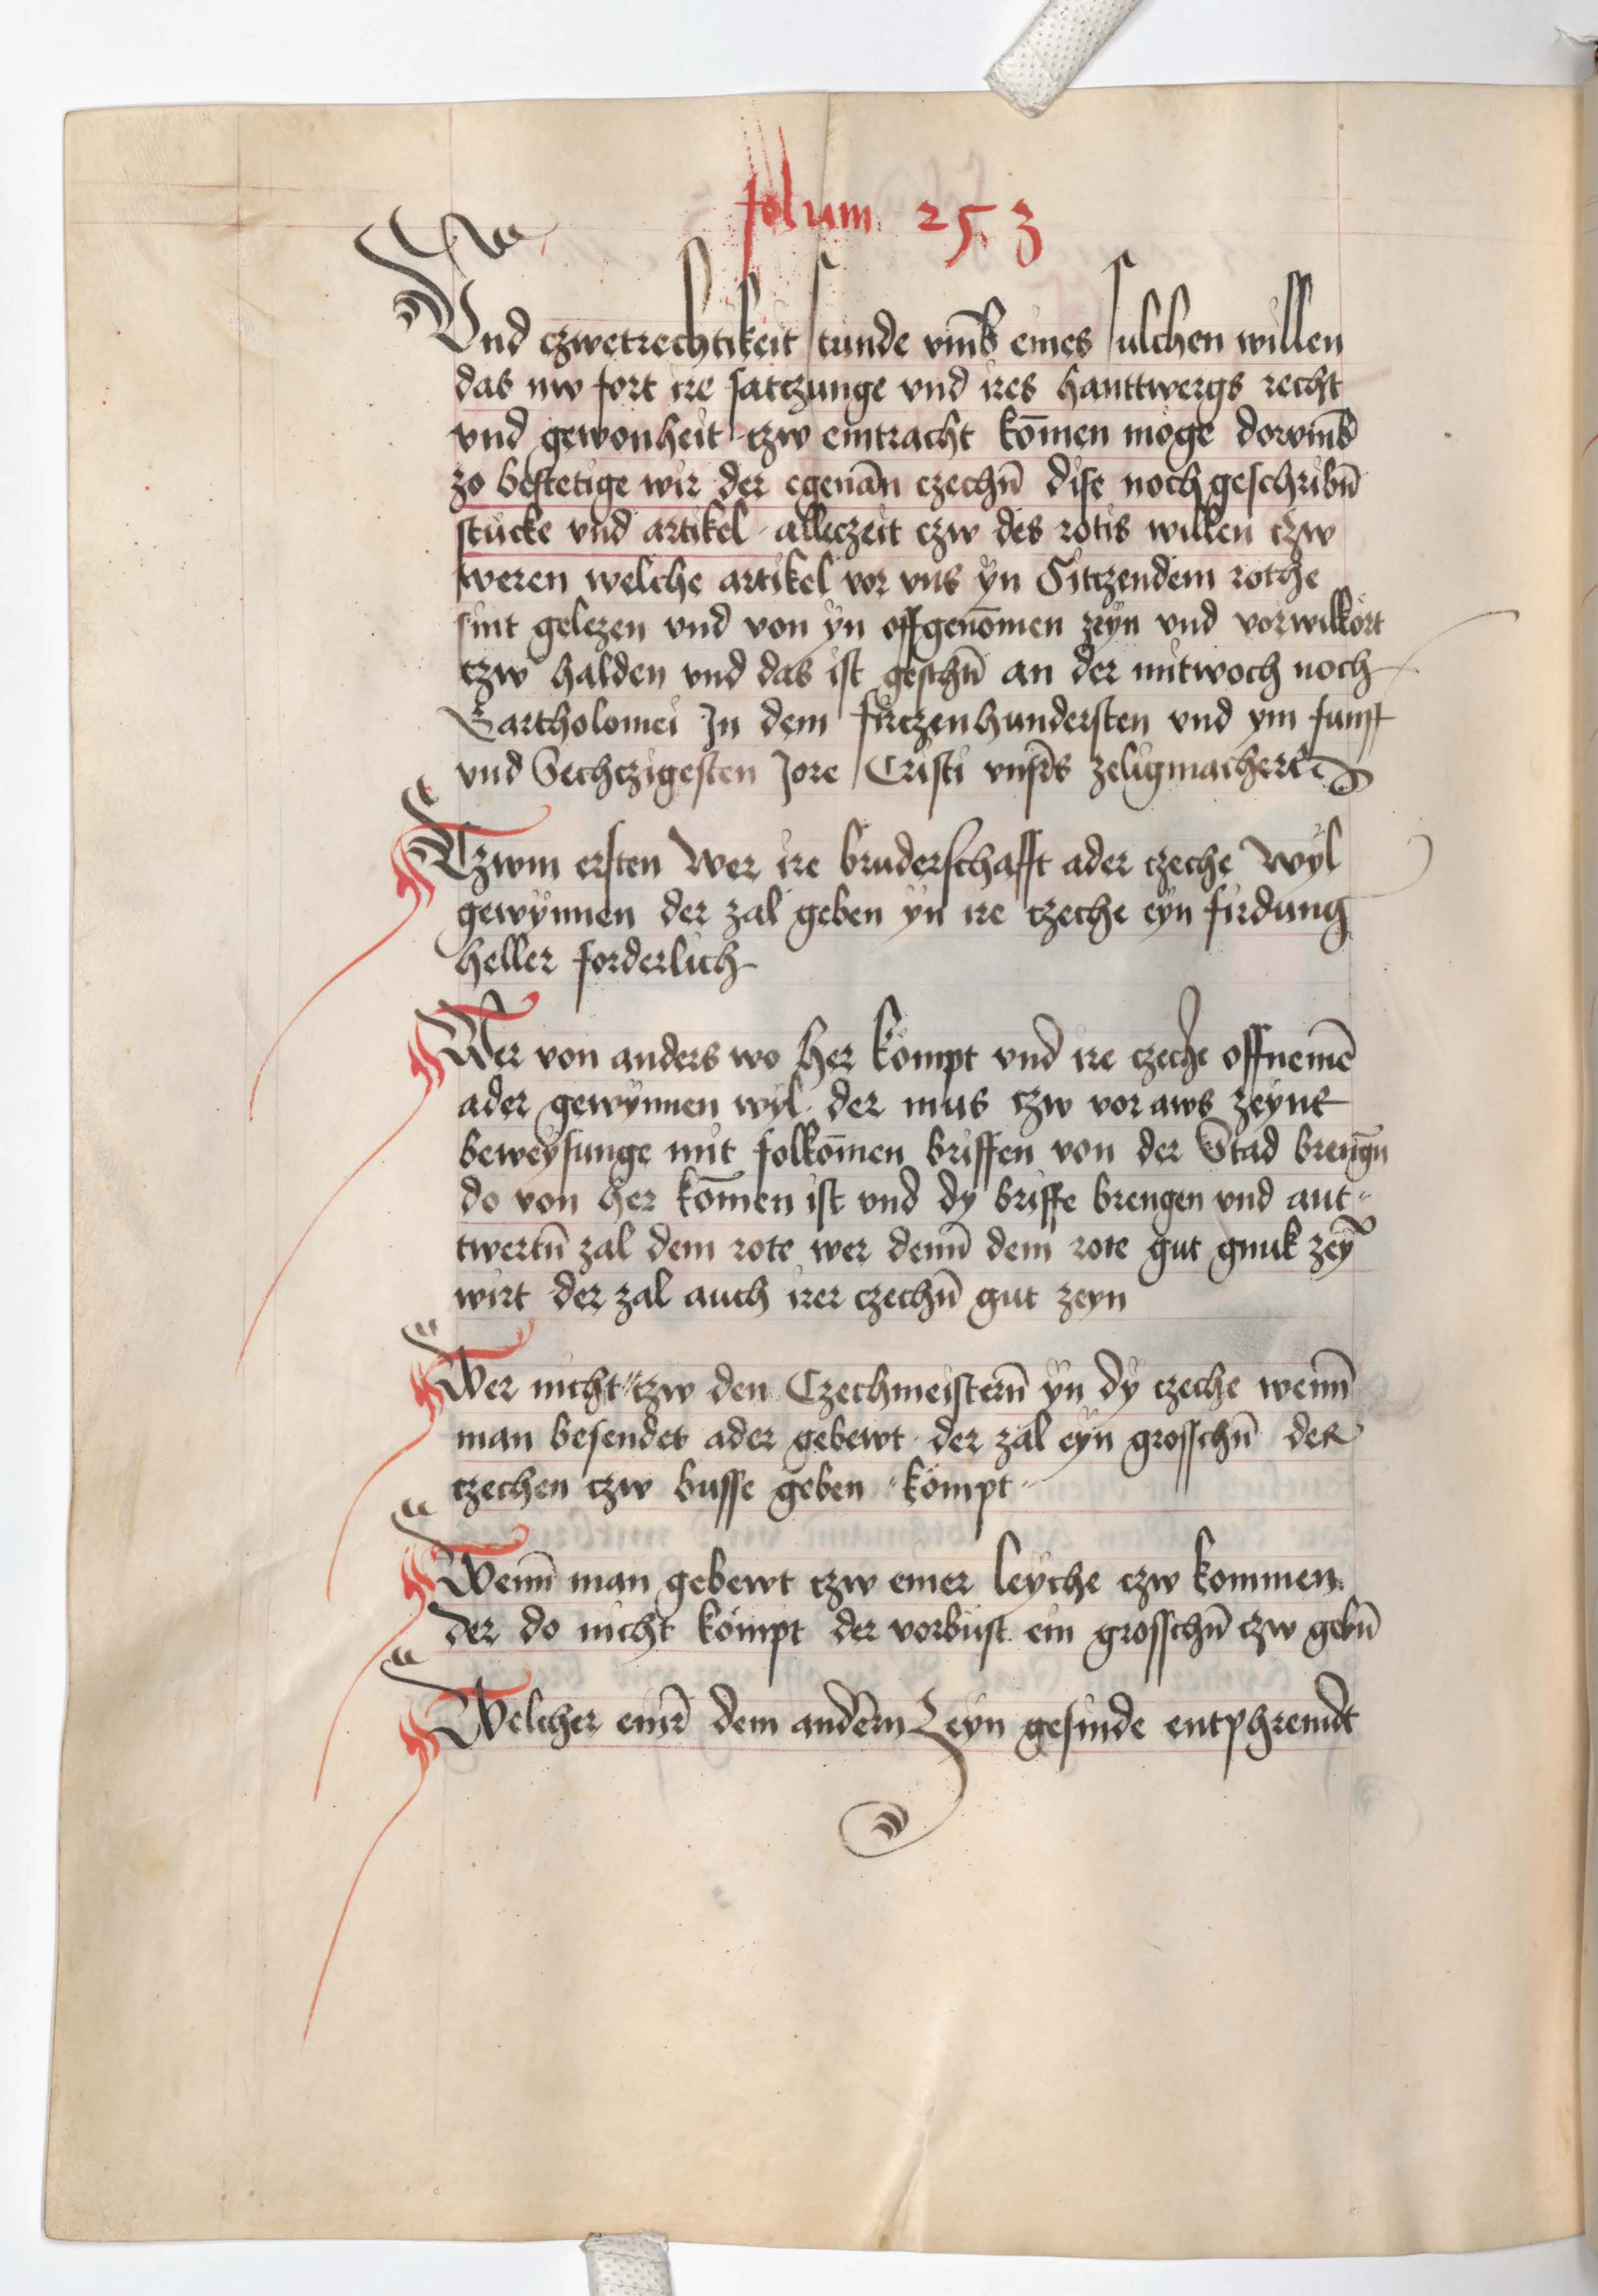 folium 253
Vnd czwetrechtikeit stunde vmb eines sulchen willen
das nw fort ire satczunge vnd ires hanttwergs recht
vnd gewonheit tzw eintracht kōmen moge dorvmb
zo bestetige wir der egenān czechn̄ dise noch geschribn̄
stucke vnd artikel alleczeit czw des rotis willen czw
weren welche artikel vor vns yn Sitczendem rothe
sint gelezen vnd von yn offgenōmen zeyn vnd vorwilkort
tzw halden vnd das ist geschn̄ an der mitwoch noch
Bartholomei Jn dem firczenhundersten vnd ym funff
vnd Sechczigesten Jore Cristi vnsr̄s zeligmachers
Tzwm ersten Wer ire bruderschafft ader czeche wyl
gewynnen der zal geben yn ire tzeche eyn firdung
heller forderlich
Wer von anders wo her kompt vnd ire czeche offnemē
ader gewynnen wyl der mus tzw vor aws zeyne
beweysunge mit folkōmen briffen von der Stad brengn̄
do von her kōmen ist vnd dy briffe brengen vnd ant〃
twertn̄ zal dem rote wer denn̄ dem rote gut gnuk zeyn̄
wirt der zal auch irer czechn̄ gut zeyn
Wer nicht〃tzw den Czechmeistern̄ yn dy czeche wenn̄
man besendet ader gebewt der zal eyn grosschn̄ der
czechen czw busse geben 〃kompt〃
Wenn̄ man gebewt tzw einer leyche czw kommen
der do nicht kompt der vorbust ein grosschn̄ czw gebn̄
Welcher einr̄ dem andern̄ Zeyn gesinde entphremdt